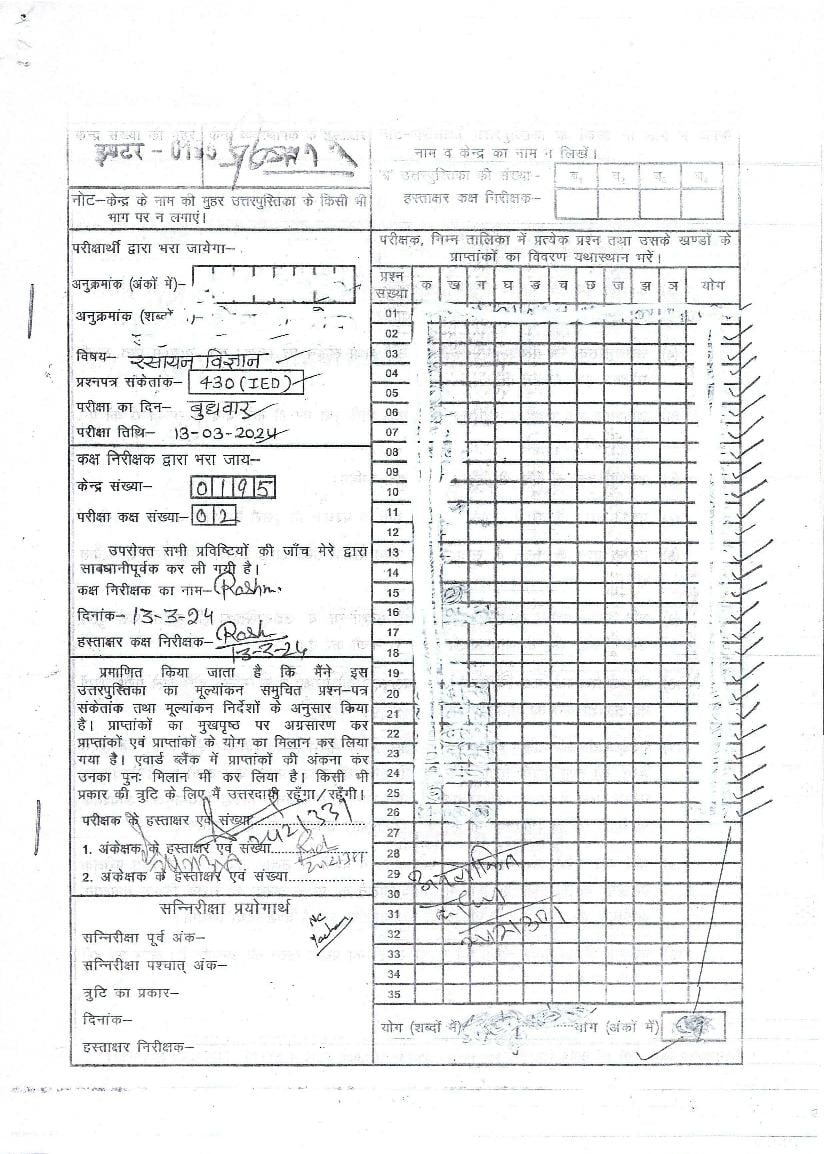 इण्टर - 0195
नोट-केन्द्र के नाम की मुहर उत्तरपुस्तिका के किसी भी
भाग पर न लगाएं।
नाम व केन्द्र का नाम न लिखें।
उत्तरपुस्तिका की संख्या -
हस्ताक्षर कक्ष निरीक्षक-
ब₁ ब₂ ब₃ ब₄
परीक्षार्थी द्वारा भरा जायेगा-
अनुक्रमांक (अंकों में)-
अनुक्रमांक
विषय- रसायन विज्ञान
प्रश्नपत्र संकेतांक- 430 (IED)
परीक्षा का दिन- बुधवार
परीक्षा तिथि- 13-03-2024
कक्ष निरीक्षक द्वारा भरा जाय-
केन्द्र संख्या- 0195
परीक्षा कक्ष संख्या- 02
उपरोक्त सभी प्रविष्टियों की जाँच मेरे द्वारा
सावधानीपूर्वक कर ली गयी है।
कक्ष निरीक्षक का नाम- Rashmi
दिनांक- 13-3-24
हस्ताक्षर कक्ष निरीक्षक- Rash
13-3-24
प्रमाणित किया जाता है कि मैंने इस
उत्तरपुस्तिका का मूल्यांकन समुचित प्रश्न-पत्र
संकेतांक तथा मूल्यांकन निर्देशों के अनुसार किया
है। प्राप्तांकों का मुखपृष्ठ पर अग्रसारण कर
प्राप्तांकों एवं प्राप्तांकों के योग का मिलान कर लिया
गया है। एवार्ड ब्लैंक में प्राप्तांकों की अंकना कर
उनका पुनः मिलान भी कर लिया है। किसी भी
प्रकार की त्रुटि के लिए मैं उत्तरदायी रहूँगा/रहूँगी।
परीक्षक के हस्ताक्षर एवं संख्या
2421331
1. अंकेक्षक के हस्ताक्षर एवं संख्या
2. अंकेक्षक के हस्ताक्षर एवं संख्या
सन्निरीक्षा प्रयोगार्थ
सन्निरीक्षा पूर्व अंक-
सन्निरीक्षा पश्चात् अंक-
त्रुटि का प्रकार-
दिनांक-
हस्ताक्षर निरीक्षक-
NC
परीक्षक, निम्न तालिका में प्रत्येक प्रश्न तथा उसके खण्डों के
प्राप्तांकों का विवरण यथास्थान भरें।
प्रश्न संख्या क ख ग घ ङ च छ ज झ ञ योग
01
02
03
04
05
06
07
08
09
10
11
12
13
14
15
16
17
18
19
20
21
22
23
24
25
26
27
28
29
30
31
32
33
34
35
योग (शब्दों में) योग (अंकों में)